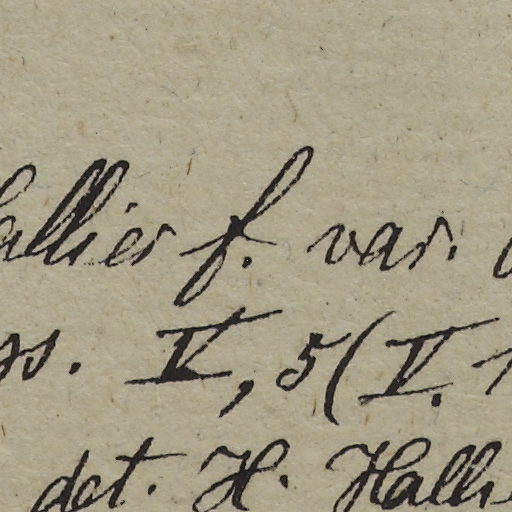 Hallier f. var.
ss. V, 5 (V. 1
det. H. Halli